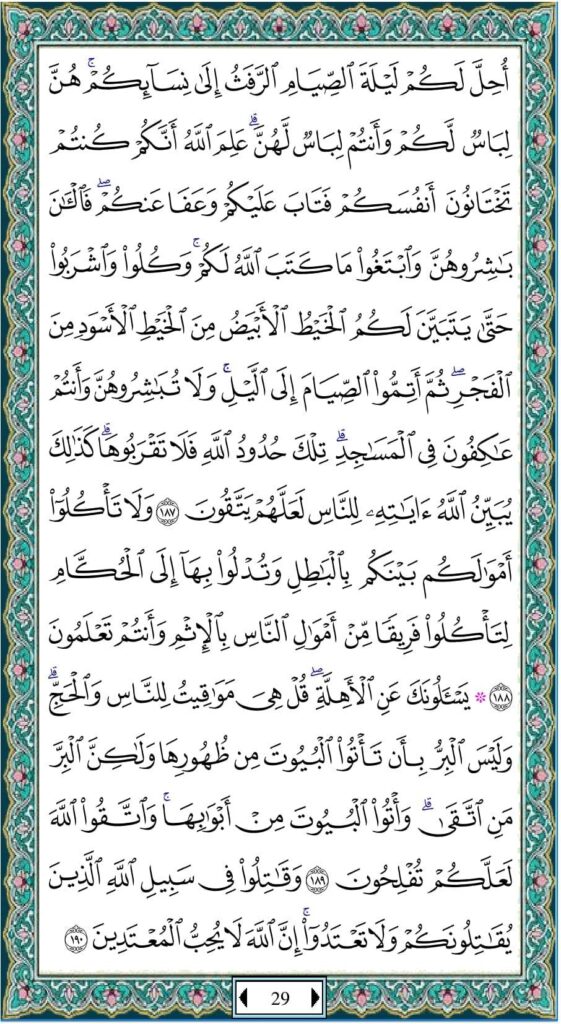 أُحِلَّ لَكُمْ لَيْلَةَ ٱلصِّيَامِ ٱلرَّفَثُ إِلَىٰ نِسَآئِكُمْۚ هُنَّ
لِبَاسٌ لَّكُمْ وَأَنتُمْ لِبَاسٌ لَّهُنَّۗ عَلِمَ ٱللَّهُ أَنَّكُمْ كُنتُمْ
تَخْتَانُونَ أَنفُسَكُمْ فَتَابَ عَلَيْكُمْ وَعَفَا عَنكُمْۖ فَٱلْـَٰٔنَ
بَـٰشِرُوهُنَّ وَٱبْتَغُوا۟ مَا كَتَبَ ٱللَّهُ لَكُمْۚ وَكُلُوا۟ وَٱشْرَبُوا۟
حَتَّىٰ يَتَبَيَّنَ لَكُمُ ٱلْخَيْطُ ٱلْأَبْيَضُ مِنَ ٱلْخَيْطِ ٱلْأَسْوَدِ مِنَ
ٱلْفَجْرِۖ ثُمَّ أَتِمُّوا۟ ٱلصِّيَامَ إِلَى ٱلَّيْلِۚ وَلَا تُبَـٰشِرُوهُنَّ وَأَنتُمْ
عَـٰكِفُونَ فِى ٱلْمَسَـٰجِدِۗ تِلْكَ حُدُودُ ٱللَّهِ فَلَا تَقْرَبُوهَاۗ كَذَٰلِكَ
يُبَيِّنُ ٱللَّهُ ءَايَـٰتِهِۦ لِلنَّاسِ لَعَلَّهُمْ يَتَّقُونَ ١٨٧ وَلَا تَأْكُلُوٓا۟
أَمْوَٰلَكُم بَيْنَكُم بِٱلْبَـٰطِلِ وَتُدْلُوا۟ بِهَآ إِلَى ٱلْحُكَّامِ
لِتَأْكُلُوا۟ فَرِيقًا مِّنْ أَمْوَٰلِ ٱلنَّاسِ بِٱلْإِثْمِ وَأَنتُمْ تَعْلَمُونَ
١٨٨ ۞ يَسْـَٔلُونَكَ عَنِ ٱلْأَهِلَّةِۖ قُلْ هِىَ مَوَٰقِيتُ لِلنَّاسِ وَٱلْحَجِّۗ
وَلَيْسَ ٱلْبِرُّ بِأَن تَأْتُوا۟ ٱلْبُيُوتَ مِن ظُهُورِهَا وَلَـٰكِنَّ ٱلْبِرَّ
مَنِ ٱتَّقَىٰۗ وَأْتُوا۟ ٱلْبُيُوتَ مِنْ أَبْوَٰبِهَاۚ وَٱتَّقُوا۟ ٱللَّهَ
لَعَلَّكُمْ تُفْلِحُونَ ١٨٩ وَقَـٰتِلُوا۟ فِى سَبِيلِ ٱللَّهِ ٱلَّذِينَ
يُقَـٰتِلُونَكُمْ وَلَا تَعْتَدُوٓا۟ۚ إِنَّ ٱللَّهَ لَا يُحِبُّ ٱلْمُعْتَدِينَ ١٩٠
29